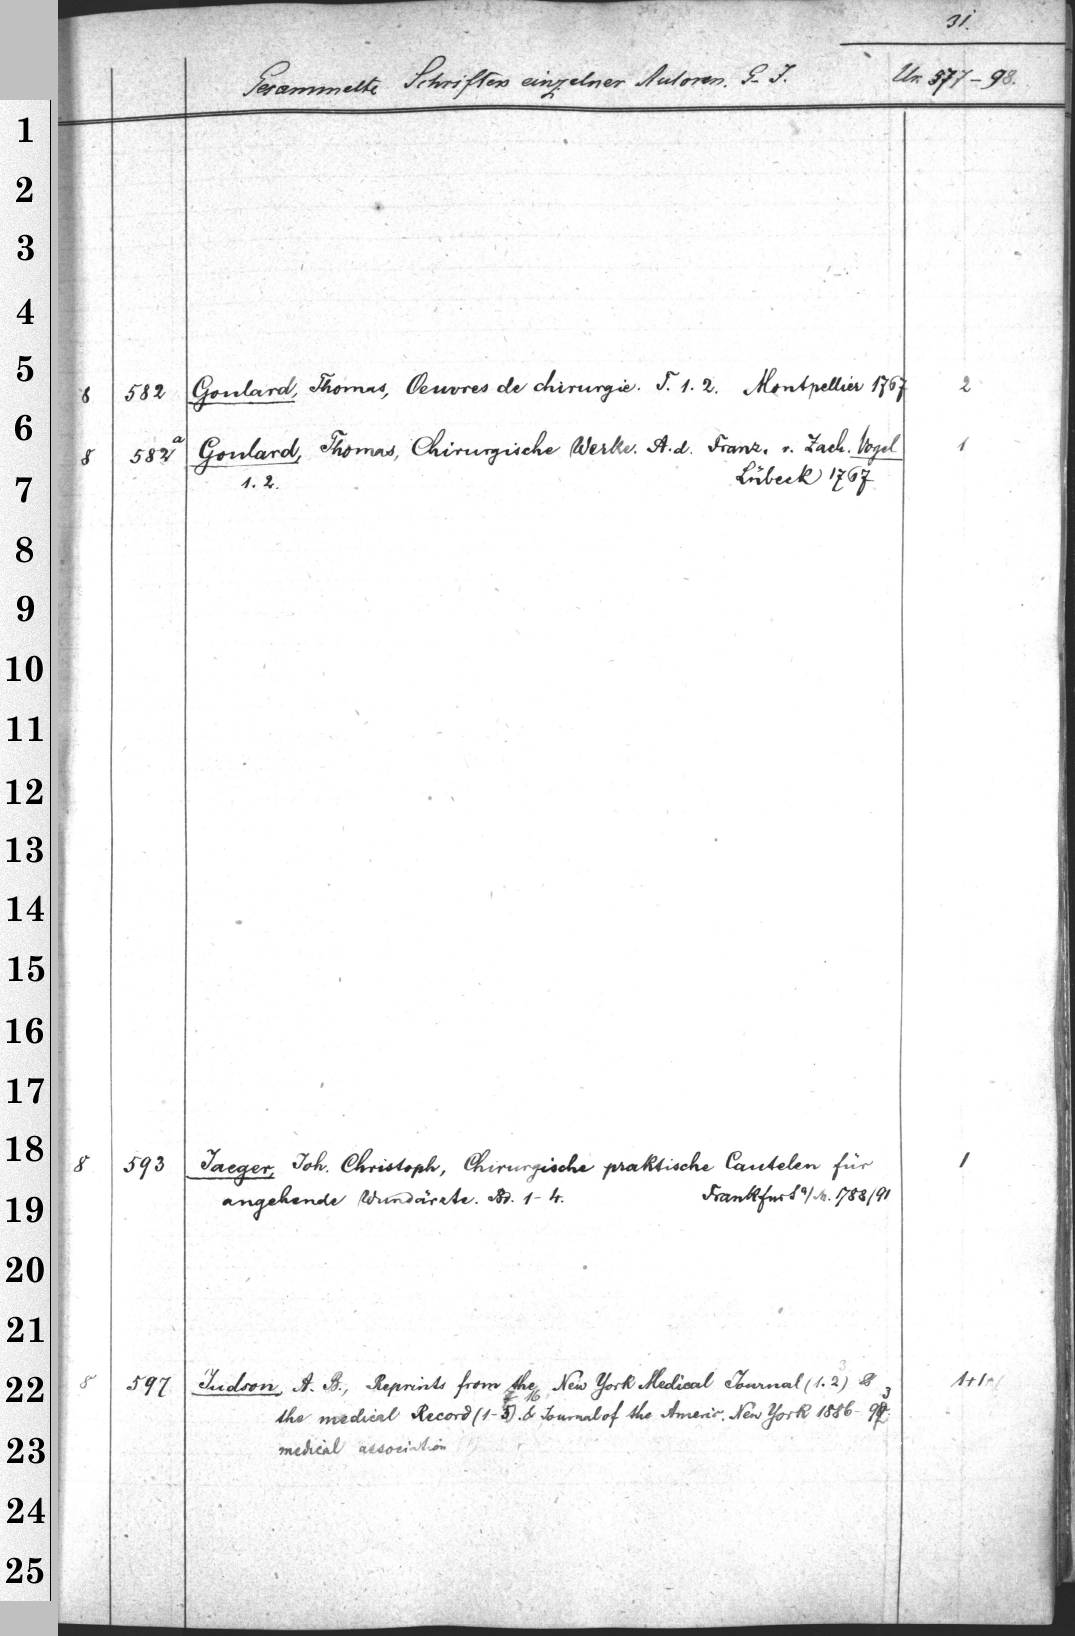 31.
Gesammelte Schriften einzelner Autoren. G-J. Un 577-98.
1
2
3
4
5
8 582 Goulard, Thomas, Oeuvres de chirurgie. T. 1. 2. Montpellier 1767 2
6
8 582a Goulard, Thomas, Chirurgische Werke. A. d. Franz. v. Zach. Vogel 1
7
1. 2. Lübeck 1767
8
9
10
11
12
13
14
15
16
17
18
8 593 Jaeger, Joh. Christoph, Chirurgische praktische Cautelen für 1
19
angehende Wundärzte. Bd. 1-4. Frankfurt a/M. 1788/91
20
21
22
8 597 Judson, A. B., Reprints from the New York Medical Journal (1. 2) & 1+1
the medical Record (1-5). & Journal of the Americ. New York 1886-93
23
medical association
24
25